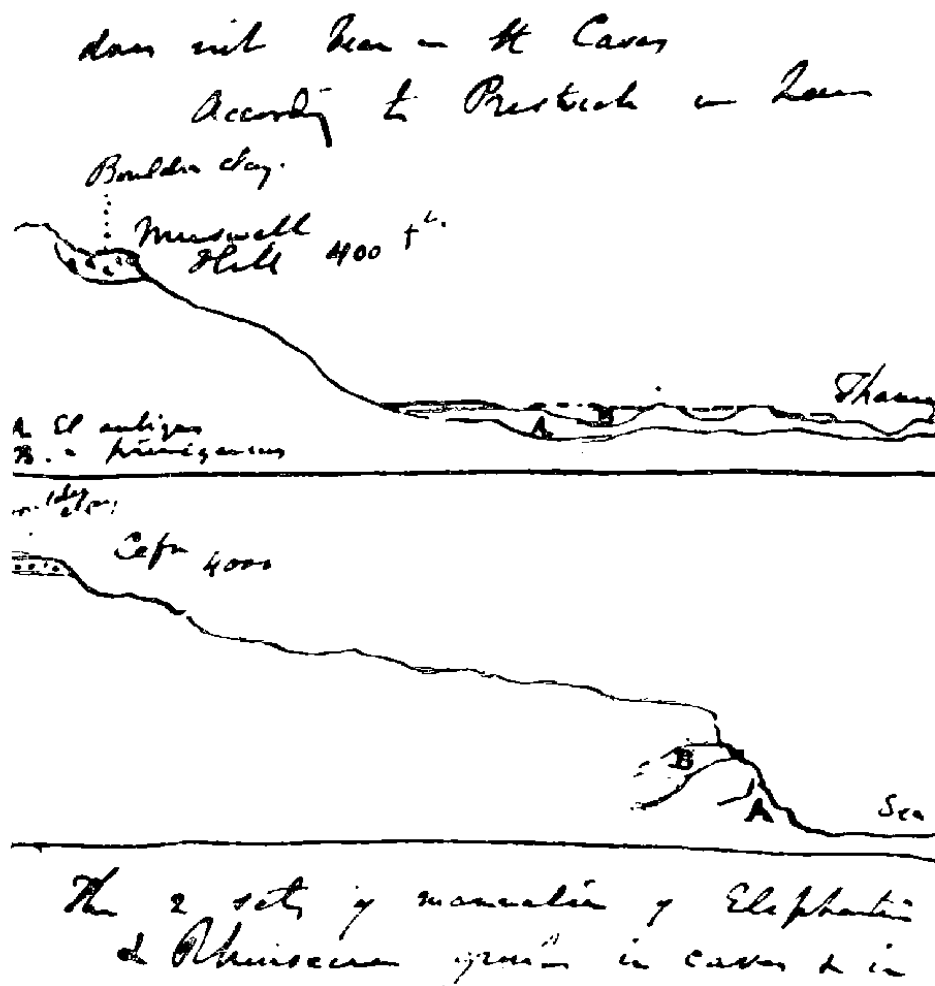 does not bear on the Caves
According to Prestwich in
Boulder clay.
Muswell
Hill 400 ft.
Thames
A El antiquus
B. " primigenius
Cefn 400
B
A
B
A
Sea
The 2 sets of mammalia of Elephantine
& Rhinoceros in caves & in